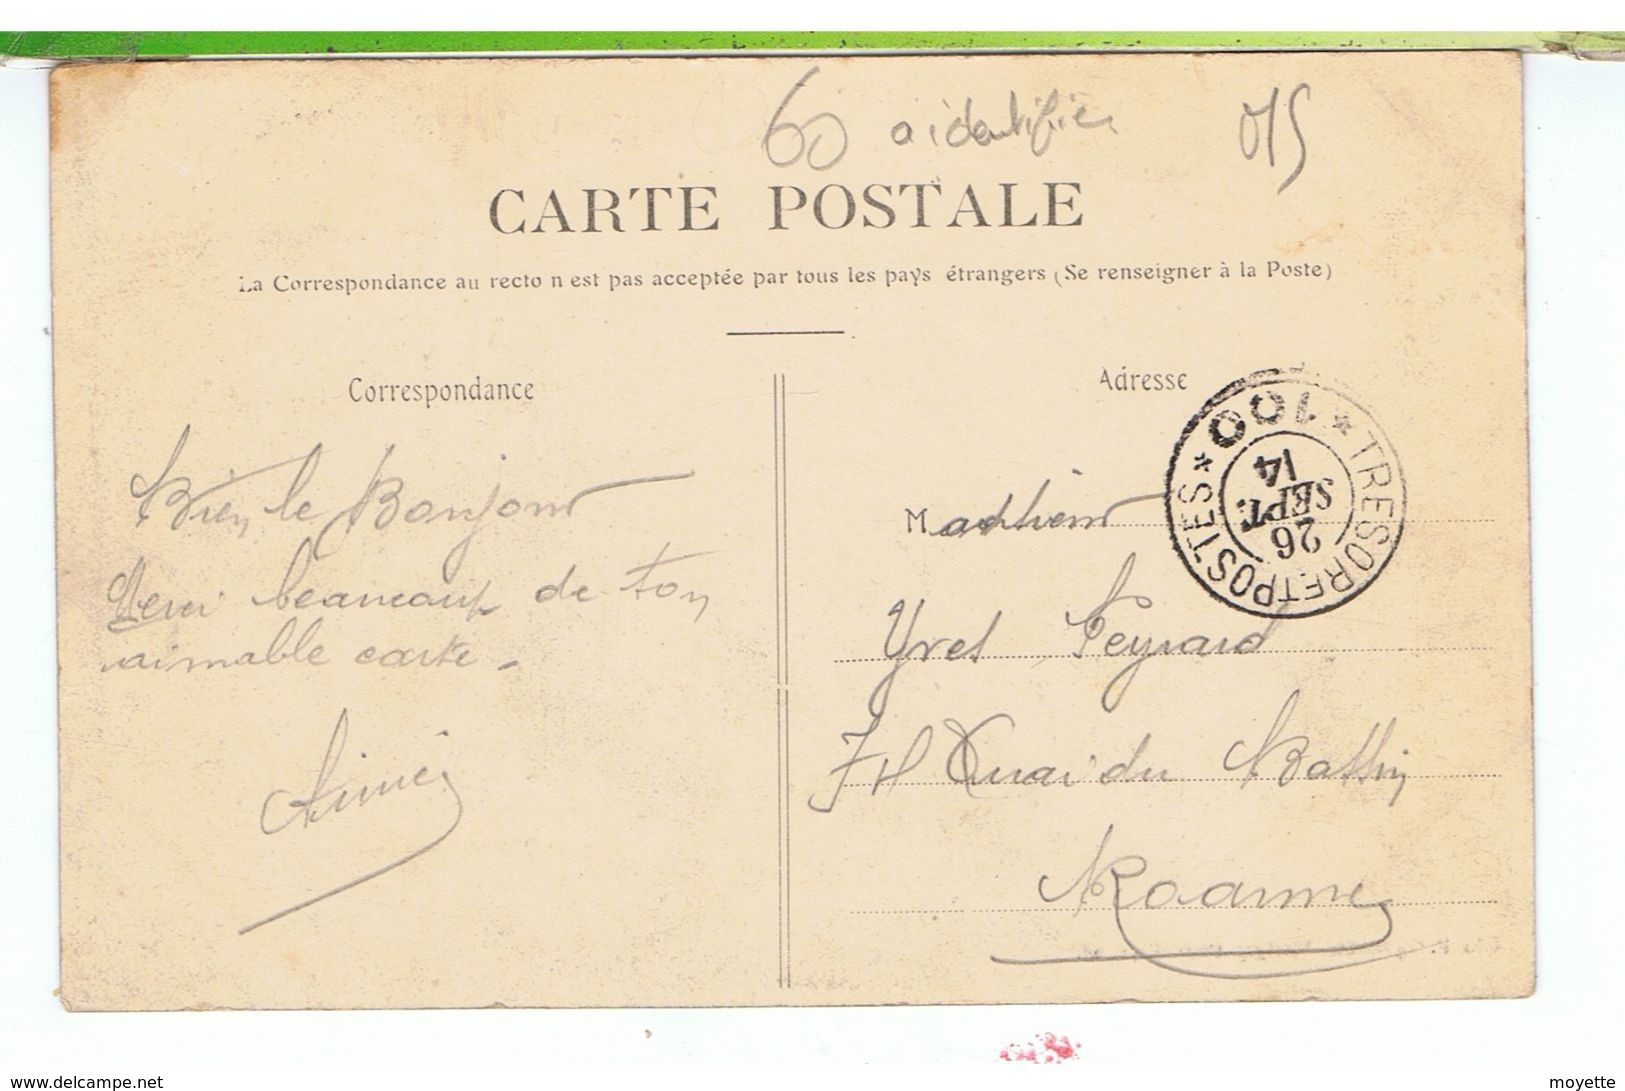 60 a identifier 015
CARTE POSTALE
La Correspondance au recto n est pas acceptée par tous les pays étrangers (Se renseigner à la Poste)
Correspondance
Adresse
Bien le Bonjour
Merci beaucoup de ton
aimable carte.
Aimé
Monsieur
Yves Peyrard
Quai du Bassin
Roanne
* TRESOR ET POSTES * 100
26
SEPT.
14
delcampe.net
moyette